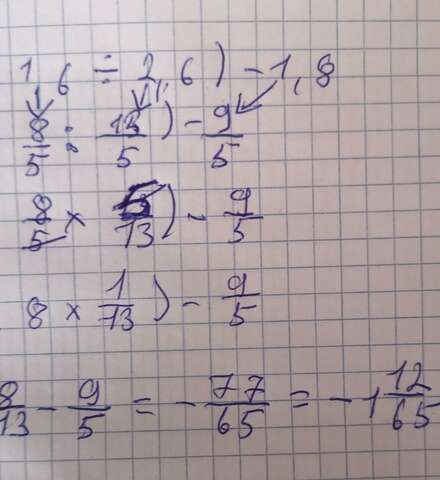 1,6 ÷ 2,6) - 1,8
8/5 : 13/5) - 9/5
8/5 × 5/13) - 9/5
8 × 1/13) - 9/5
8/13 - 9/5 = - 77/65 = - 1 12/65